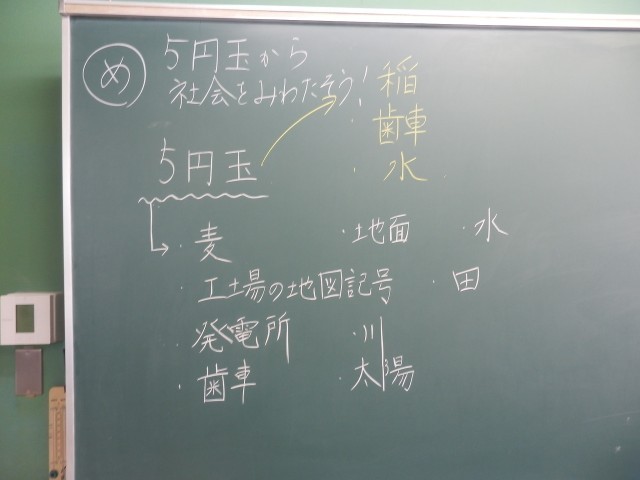 め 5円玉から
社会をみわたそう!
稲
歯車
水
5円玉
・麦 ・地面 ・水
・工場の地図記号 ・田
・発電所 ・川
・歯車 ・太陽